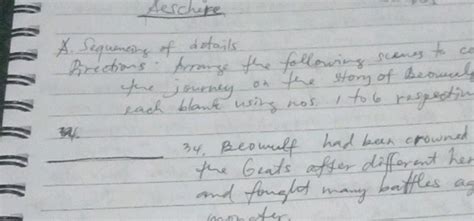 Aeschere
A. Sequencing of details
Directions: Arrange the following scenes to c
the journey on the story of Beowul
each blank using nos. 1 to 6 respectiv
34. Beowulf had been crowned
the Geats after different her
and fought many battles ag
monster.